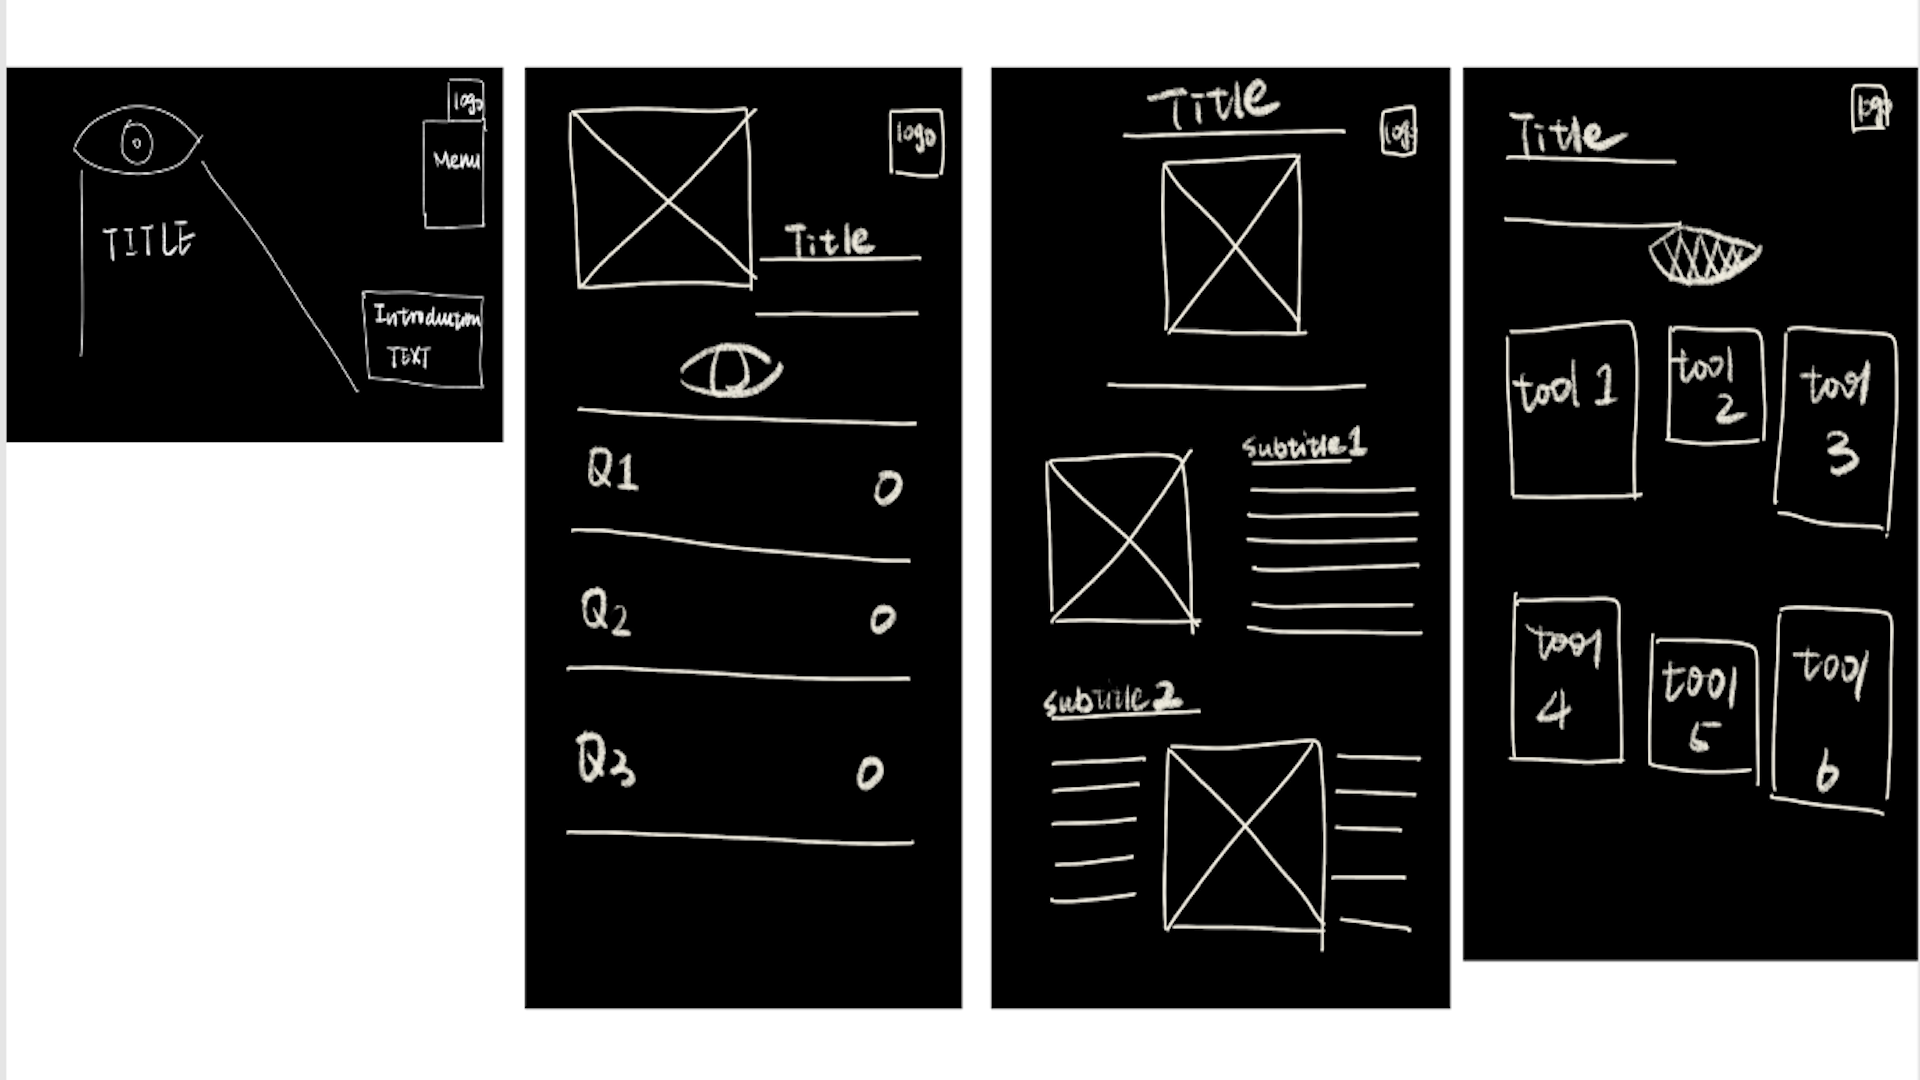 logo
Menu
TITLE
Introduction
TEXT
logo
Title
Q1 O
Q2 O
Q3 O
Title
log
subtitle1
subtitle2
logo
Title
tool 1
tool
2
tool
3
tool
4
tool
5
tool
6